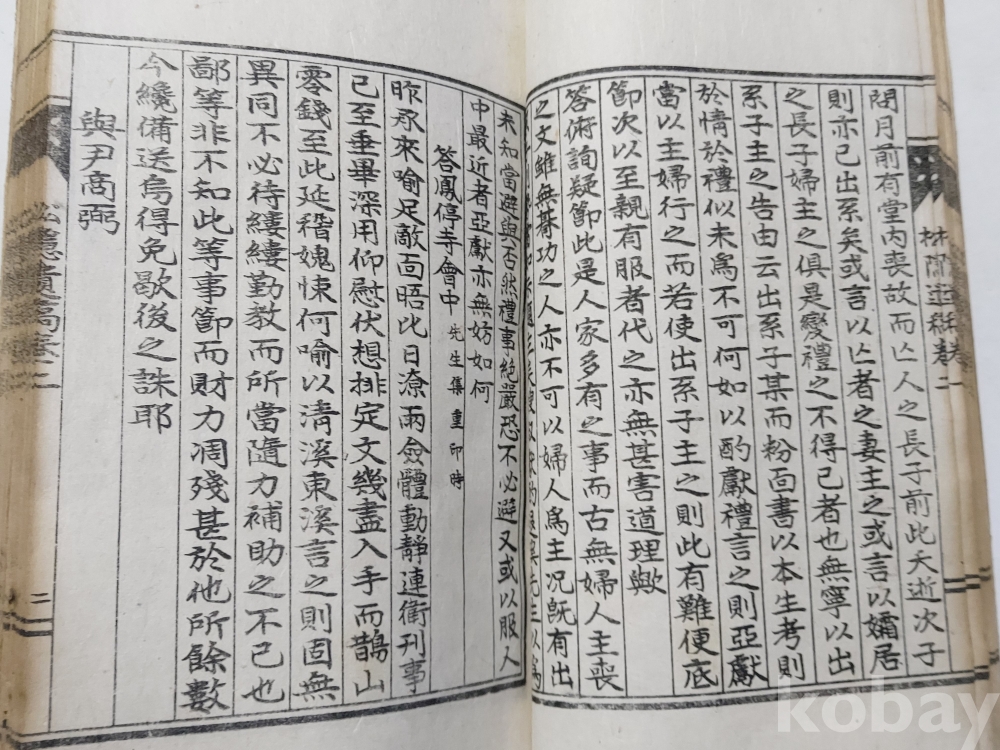 問月前有堂内喪故而亡人之長子前此夭逝次子
則亦已出系矣或言以亡者之妻主之或言以孀居
之長子婦主之俱是變禮之不得已者也無寧以出
系子主之告由云出系子某而粉面書以本生考則
於情於禮似未爲不可何如以酌獻禮言之則亞獻
當以主婦行之而若使出系子主之則此有難便底
節次以至親有服者代之亦無甚害道理歟
答俯詢疑節此是人家多有之事而古無婦人主喪
之文雖無朞功之人亦不可以婦人爲主況旣有出
未知當避與否然禮事絶嚴恐不必避又或以服人
中最近者亞獻亦無妨如何
答鳳停寺會中 先生集重印時
昨承來喻足敵面晤比日潦雨僉體動靜連衛刊事
已至垂畢深用仰慰伏想排定文幾盡入手而鵲山
零錢至此延稽媿悚何喻以淸溪東溪言之則固無
異同不必待縷縷勤敎而所當隨力補助之不已也
鄙等非不知此等事節而財力凋殘甚於他所餘數
今纔備送烏得免歇後之誅耶
與尹商弼
二
kobay